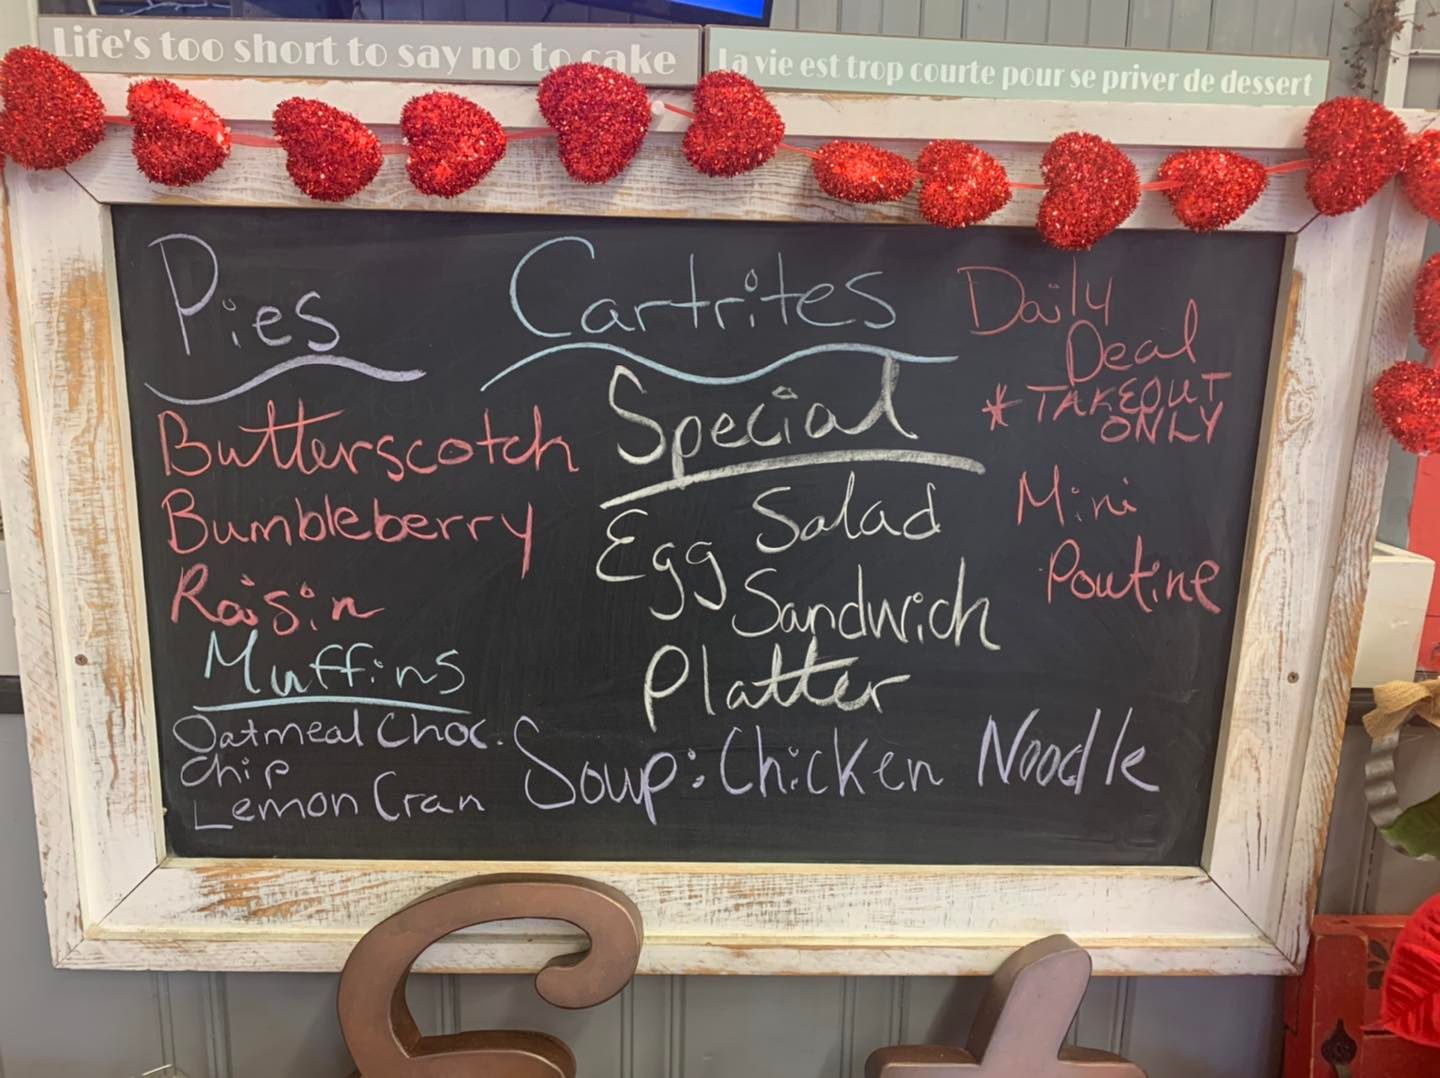 Life's too short to say no to cake
La vie est trop courte pour se priver de dessert
Pies
Butterscotch
Bumbleberry
Raisin
Muffins
Oatmeal Choc.
Chip
Lemon Cran
Cartrites
Special
Egg Salad
Sandwich
Platter
Soup: Chicken Noodle
Daily
Deal
* TAKEOUT
ONLY
Mini
Poutine